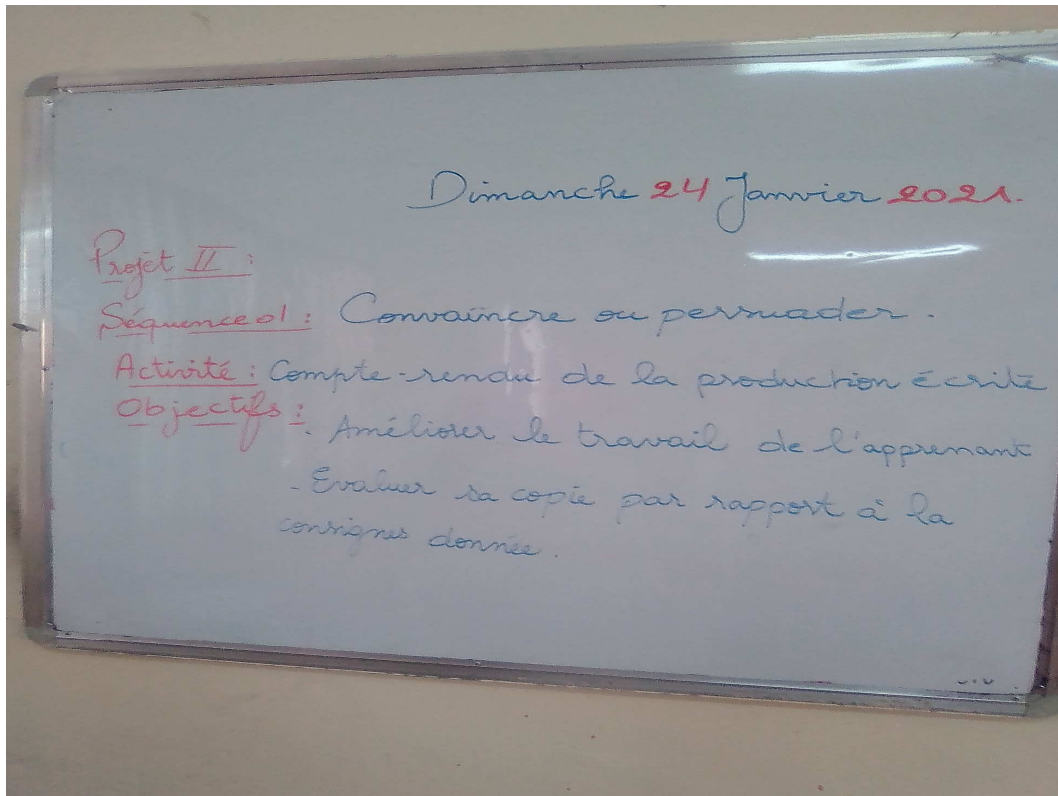 Dimanche 24 Janvier 2021.
Projet II :
Séquence 01 : Convaincre ou persuader.
Activité : Compte-rendu de la production écrite
Objectifs :
- Améliorer le travail de l'apprenant
- Evaluer sa copie par rapport à la
consignes donnée.